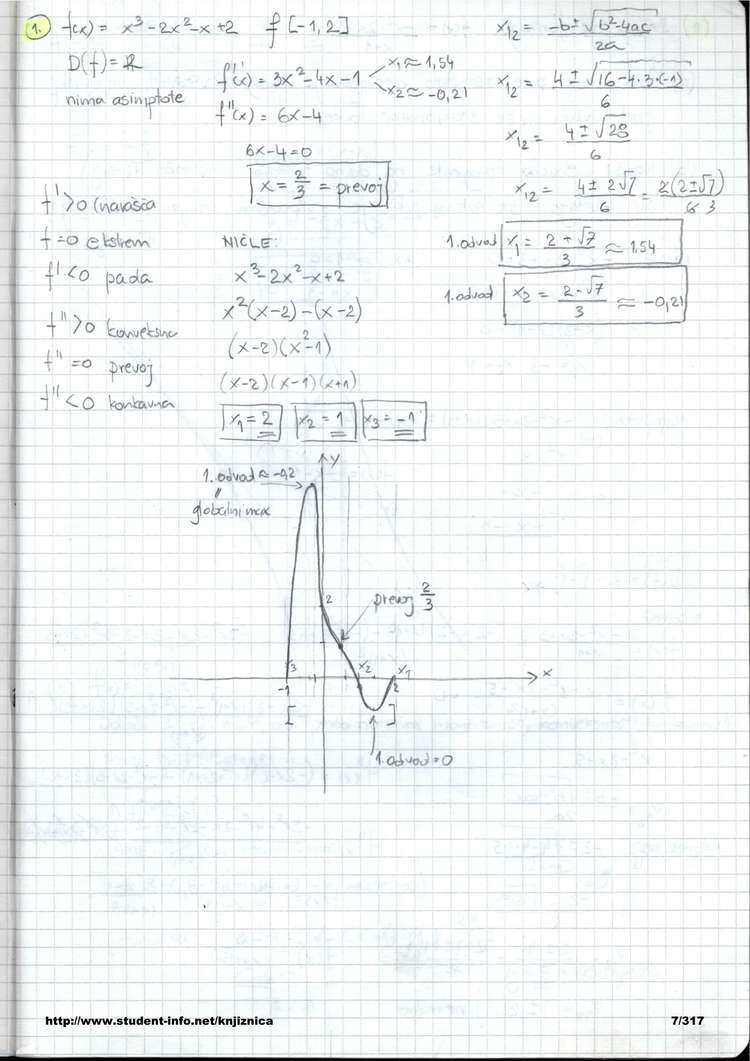 1. f(x) = x³-2x²-x+2 f [-1,2]
D(f)=R
nima asimptote
f'(x) = 3x²-4x-1
x₁≈1,54
x₂≈-0,21
f''(x) = 6x-4
6x-4=0
x = 2/3 = prevoj
x₁₂ = (-b±√(b²-4ac))/2a
x₁₂ = (4±√(16-4·3·(-1)))/6
x₁₂ = (4±√28)/6
x₁₂ = (4±2√7)/6 = 2(2±√7)/6 3
1.odvod x₁ = (2+√7)/3 ≈ 1,54
1.odvod x₂ = (2-√7)/3 ≈ -0,21
f'>0 (narašča
f=0 ekstrem
f'<0 pada
f''>0 konveksna
f''=0 prevoj
f''<0 konkavna
NIČLE:
x³-2x²-x+2
x²(x-2)-(x-2)
(x-2)(x²-1)
(x-2)(x-1)(x+1)
x₁=2 x₂=1 x₃=-1
y
1.odvod≈-0,2
globalni max
2
prevoj 2/3
x₃ x₂ x₁ x
-1 2
[ ]
1.odvod=0
http://www.student-info.net/knjiznica 7/317